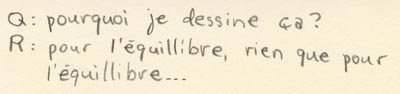 Q: pourquoi je dessine ça?
R: pour l'équillibre, rien que pour
l'équillibre...